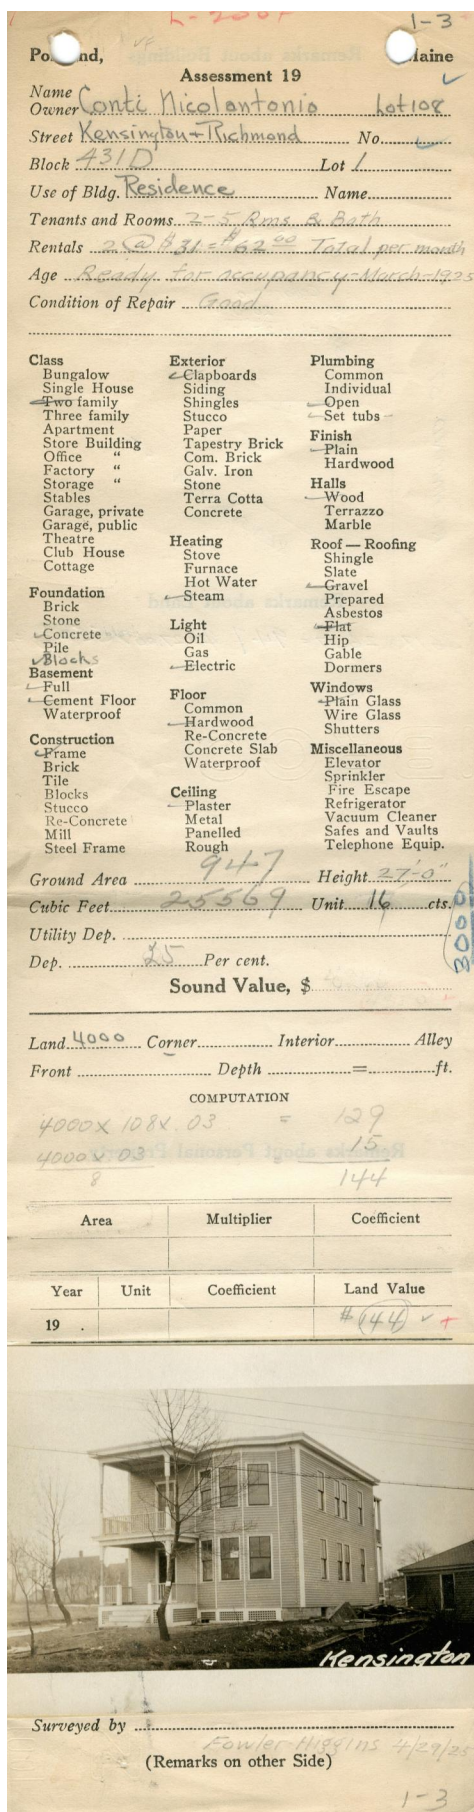 1-3
Portland, Maine
Assessment 19
Name
Owner Conti Nicolantonio Lot 108
Street Kensington + Richmond No.
Block 431D Lot 1
Use of Bldg. Residence Name
Tenants and Rooms 2-5 Rms & Bath
Rentals 2 @ $31 = $62.00 Total per month
Age Ready for occupancy-March-1925
Condition of Repair Good
Class
Bungalow
Single House
Two family
Three family
Apartment
Store Building
Office "
Factory "
Storage "
Stables
Garage, private
Garage, public
Theatre
Club House
Cottage
Foundation
Brick
Stone
Concrete
Pile
Blocks
Basement
Full
Cement Floor
Waterproof
Construction
Frame
Brick
Tile
Blocks
Stucco
Re-Concrete
Mill
Steel Frame
Exterior
Clapboards
Siding
Shingles
Stucco
Paper
Tapestry Brick
Com. Brick
Galv. Iron
Stone
Terra Cotta
Concrete
Heating
Stove
Furnace
Hot Water
Steam
Light
Oil
Gas
Electric
Floor
Common
Hardwood
Re-Concrete
Concrete Slab
Waterproof
Ceiling
Plaster
Metal
Panelled
Rough
Plumbing
Common
Individual
Open
Set tubs
Finish
Plain
Hardwood
Halls
Wood
Terrazzo
Marble
Roof — Roofing
Shingle
Slate
Gravel
Prepared
Asbestos
Flat
Hip
Gable
Dormers
Windows
Plain Glass
Wire Glass
Shutters
Miscellaneous
Elevator
Sprinkler
Fire Escape
Refrigerator
Vacuum Cleaner
Safes and Vaults
Telephone Equip.
Ground Area 947 Height 27'-0"
Cubic Feet 25569 Unit 16 cts.
3000
Utility Dep.
Dep. 25 Per cent.
Sound Value, $
Land 4000 Corner Interior Alley
Front Depth = ft.
COMPUTATION
4000 x 108 x .03 = 129
4000 x .03 15
8 144
Area Multiplier Coefficient
Year Unit Coefficient Land Value
19 . $ 144
Kensington
Surveyed by
Fowler-Higgins 4/29/25
(Remarks on other Side)
1-3